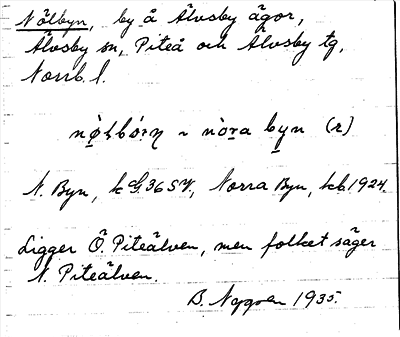 Nölbyn, by å Älvsby ägor,
Älvsby sn, Piteå och Älvsby tg,
Norrb. l.
nọ̀lbón ~ nòra byn (r)
N. Byn, k G.36 SV, Norra Byn, kb 1924.
Ligger Ö. Piteälven, men folket säger
N. Piteälven.
B. Nygren 1935.